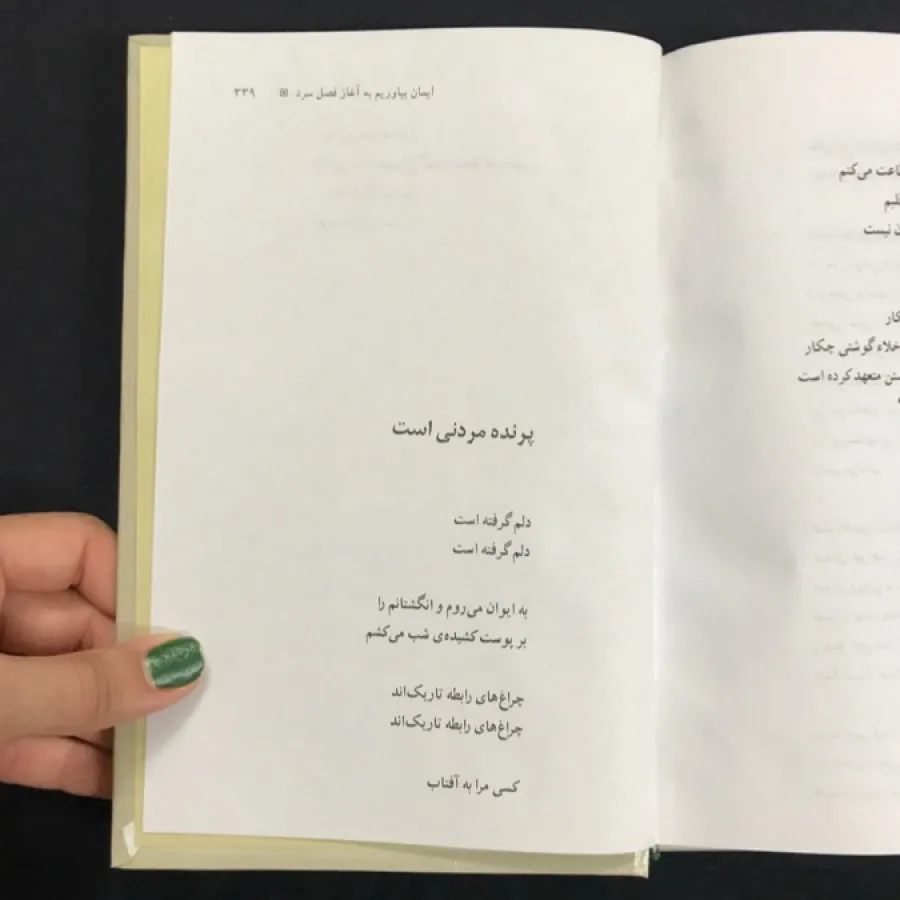 ایمان بیاوریم به آغاز فصل سرد ۳۳۹
پرنده مردنی است
دلم گرفته است
دلم گرفته است
به ایوان می‌روم و انگشتانم را
بر پوست کشیده‌ی شب می‌کشم
چراغ‌های رابطه تاریک‌اند
چراغ‌های رابطه تاریک‌اند
کسی مرا به آفتاب
می‌کنم
نیست
گوشتی چکار
متعهد کرده است